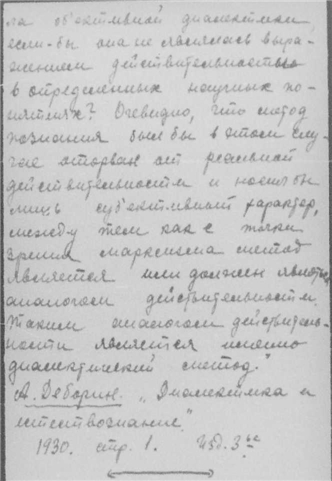 ла об'ективной диалектики,
если-бы она не являлась выра-
жением действительности
в определенных научных по-
нятиях? Очевидно, что метод
познания был бы в этом слу-
чае оторван от реальной
действительности и носил бы
лишь суб'ективный характер,
между тем как с точки
зрения марксизма метод
является или должен являться
аналогом действительности.
Таким аналогом действитель-
ности является именно
диалектический метод."
А. Деборин. „Диалектика и
естествознание."
1930. стр. 1. Изд. 3ье